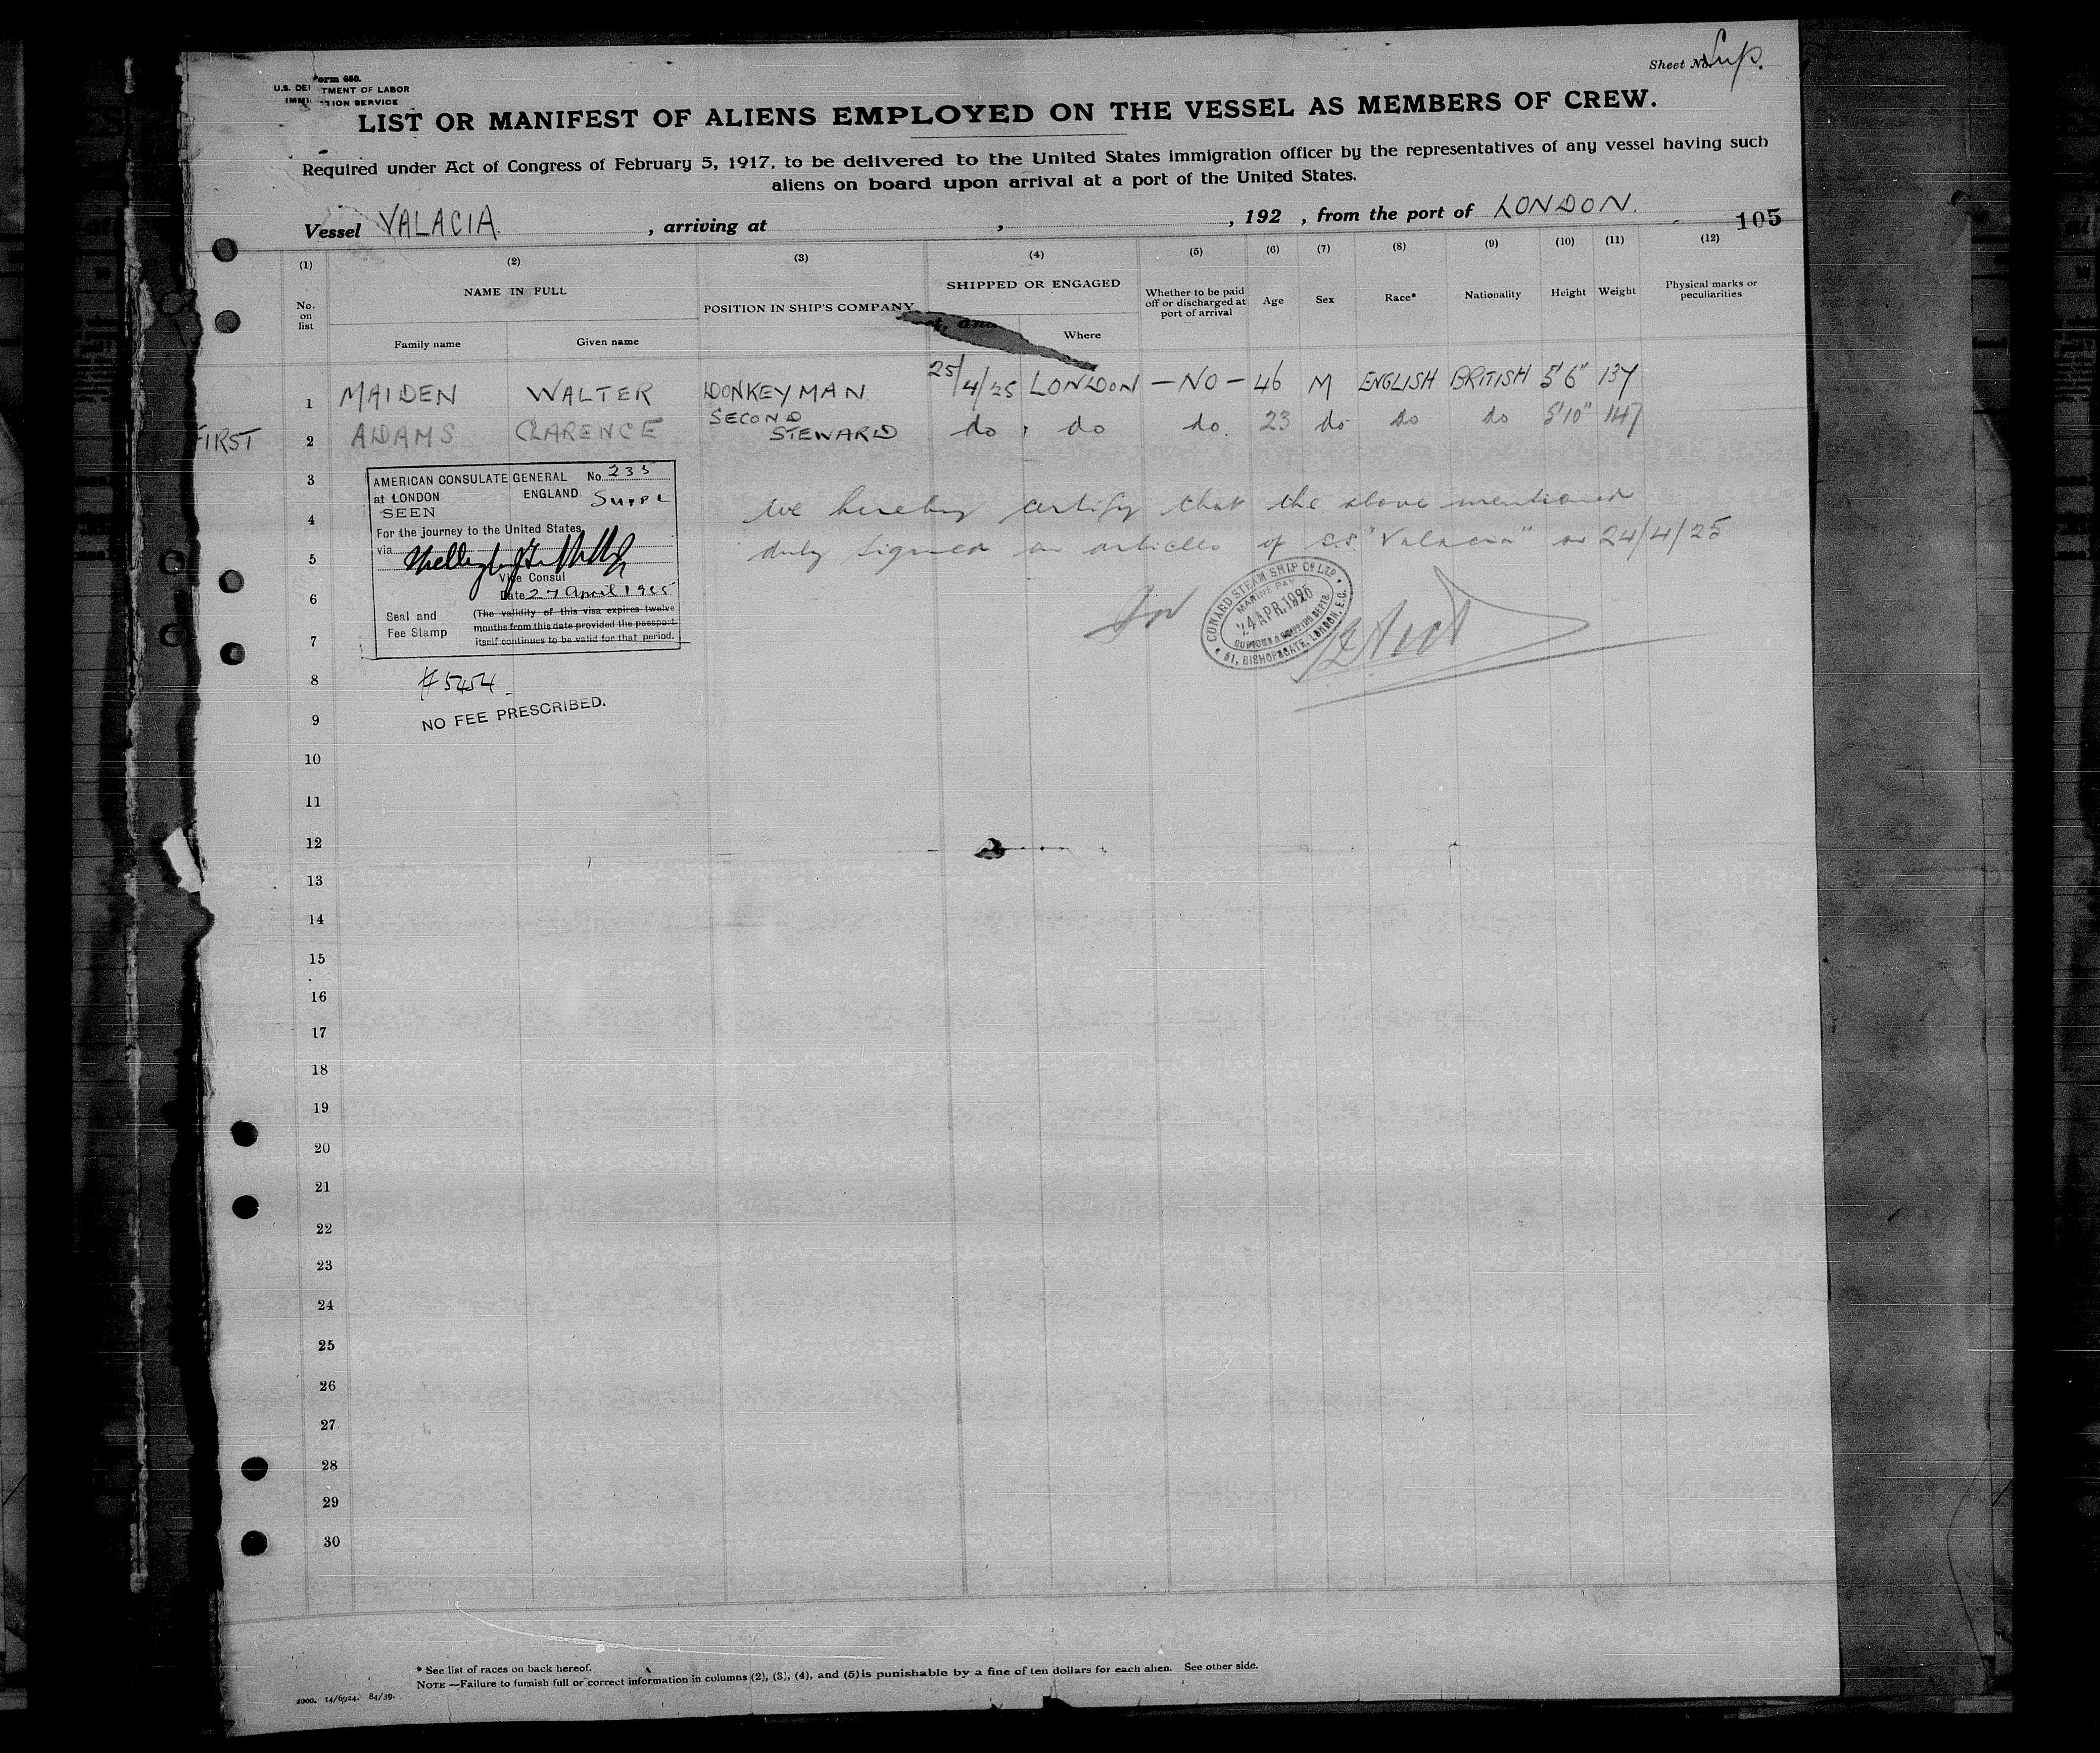 Sheet No. Sup.
Form 680.
U.S. DE TMENT OF LABOR
IMMI TION SERVICE
LIST OR MANIFEST OF ALIENS EMPLOYED ON THE VESSEL AS MEMBERS OF CREW.
Required under Act of Congress of February 5, 1917, to be delivered to the United States immigration officer by the representatives of any vessel having such
aliens on board upon arrival at a port of the United States.
Vessel VALACIA , arriving at , , 192 , from the port of LONDON. 105
(1) (2) (3) (4) (5) (6) (7) (8) (9) (10) (11) (12)
No. on list NAME IN FULL POSITION IN SHIP'S COMPANY SHIPPED OR ENGAGED Whether to be paid off or discharged at port of arrival Age Sex Race* Nationality Height Weight Physical marks or peculiarities
Family name Given name Where
1 MAIDEN WALTER DONKEYMAN 25/4/25 LONDON - NO - 46 M ENGLISH BRITISH 5'6" 137
FIRST 2 ADAMS CLARENCE SECOND STEWARD do do do. 23 do do do 5'10" 147
3
4
5
6
7
8
9
10
11
12
13
14
15
16
17
18
19
20
21
22
23
24
25
26
27
28
29
30
AMERICAN CONSULATE GENERAL No. 235
at LONDON ENGLAND Suppl
SEEN
For the journey to the United States
via
Vice Consul
Date 27 April 1925
Seal and Fee Stamp
(The validity of this visa expires twelve
months from this date provided the passport
itself continues to be valid for that period.
#5454
NO FEE PRESCRIBED.
We hereby certify that the above mentioned
duly signed on articles of s.s. "Valacia" on 24/4/25
for
CUNARD STEAM SHIP Co LTD
MARINE PAY
24 APR. 1925
51, BISHOPSGATE, LONDON, E.C.
* See list of races on back hereof.
NOTE —Failure to furnish full or correct information in columns (2), (3), (4), and (5) is punishable by a fine of ten dollars for each alien. See other side.
2000. 14/6924. 84/39.